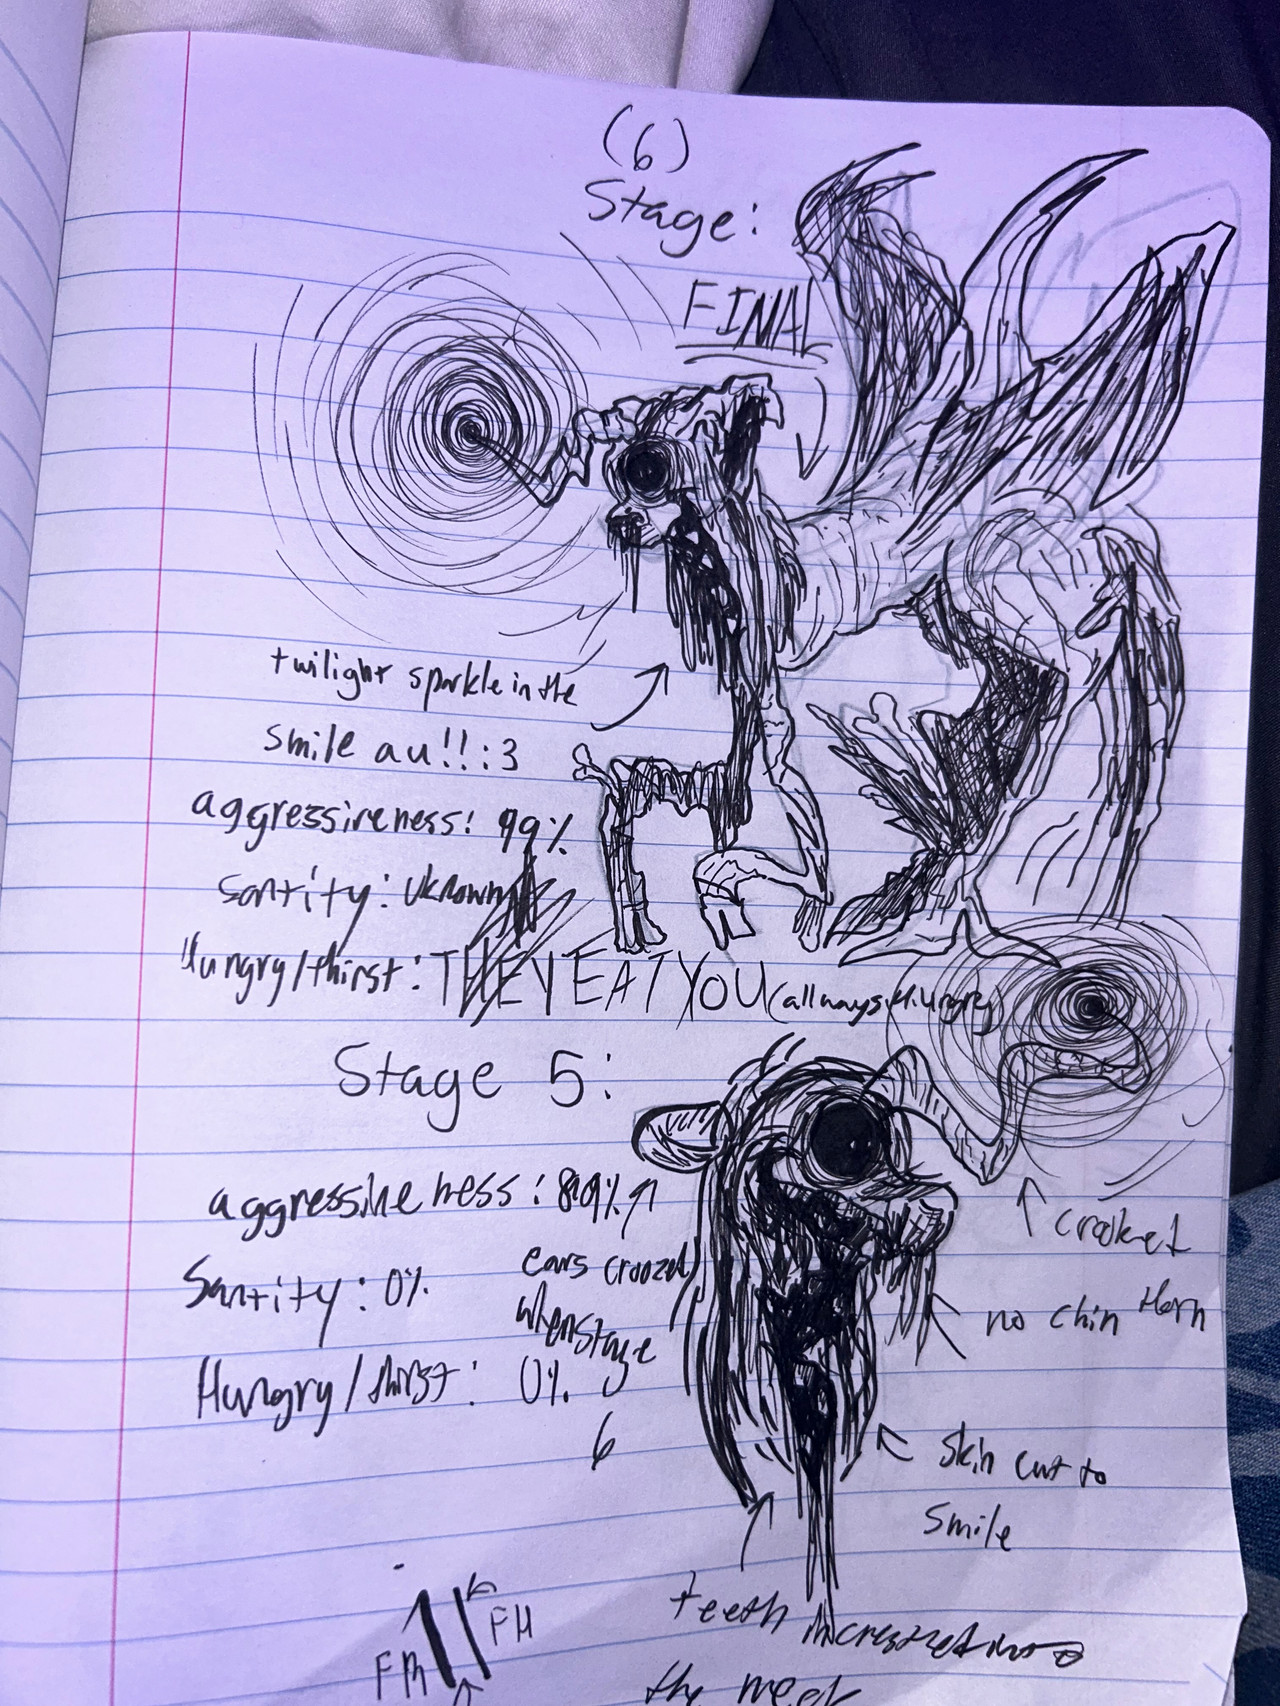 (6)
Stage:
FINAL
twilight sparkle in the
smile au!!:3
aggressiveness: 99%
santity: uknown
Hungry/thirst: THEY EAT YOU (allways Hungry)
Stage 5:
aggressiveness: 89%
Santity: 0%
Hungry/thirst: 0%
ears croozed
when stage
6
crooket
Horn
no chin
skin cut to
smile
teeth
the meat
FM
FH